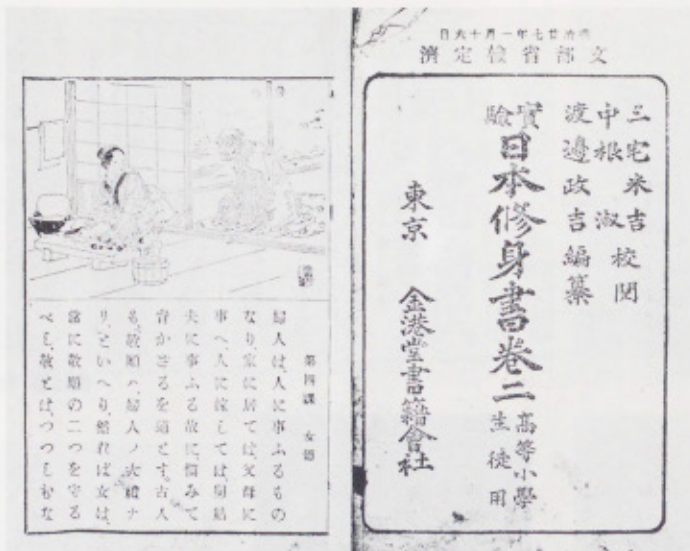 明治廿七年一月十六日
文部省検定濟
三宅米吉
中根淑 校閲
渡邊政吉編纂
實驗
日本修身書卷二
高等小學
生徒用
東京 金港堂書籍會社
第四課 女德
婦人は、人に事ふるもの
なり、家に居ては、父母に
事へ、人に嫁しては、舅姑
夫に事ふる故に、愼みて
背かざるを道とす。古人
も、敬順ハ、婦人ノ大禮ナ
リ、といへり、然れば女は、
常に敬順の二つを守る
べし、敬とは、つつしむな